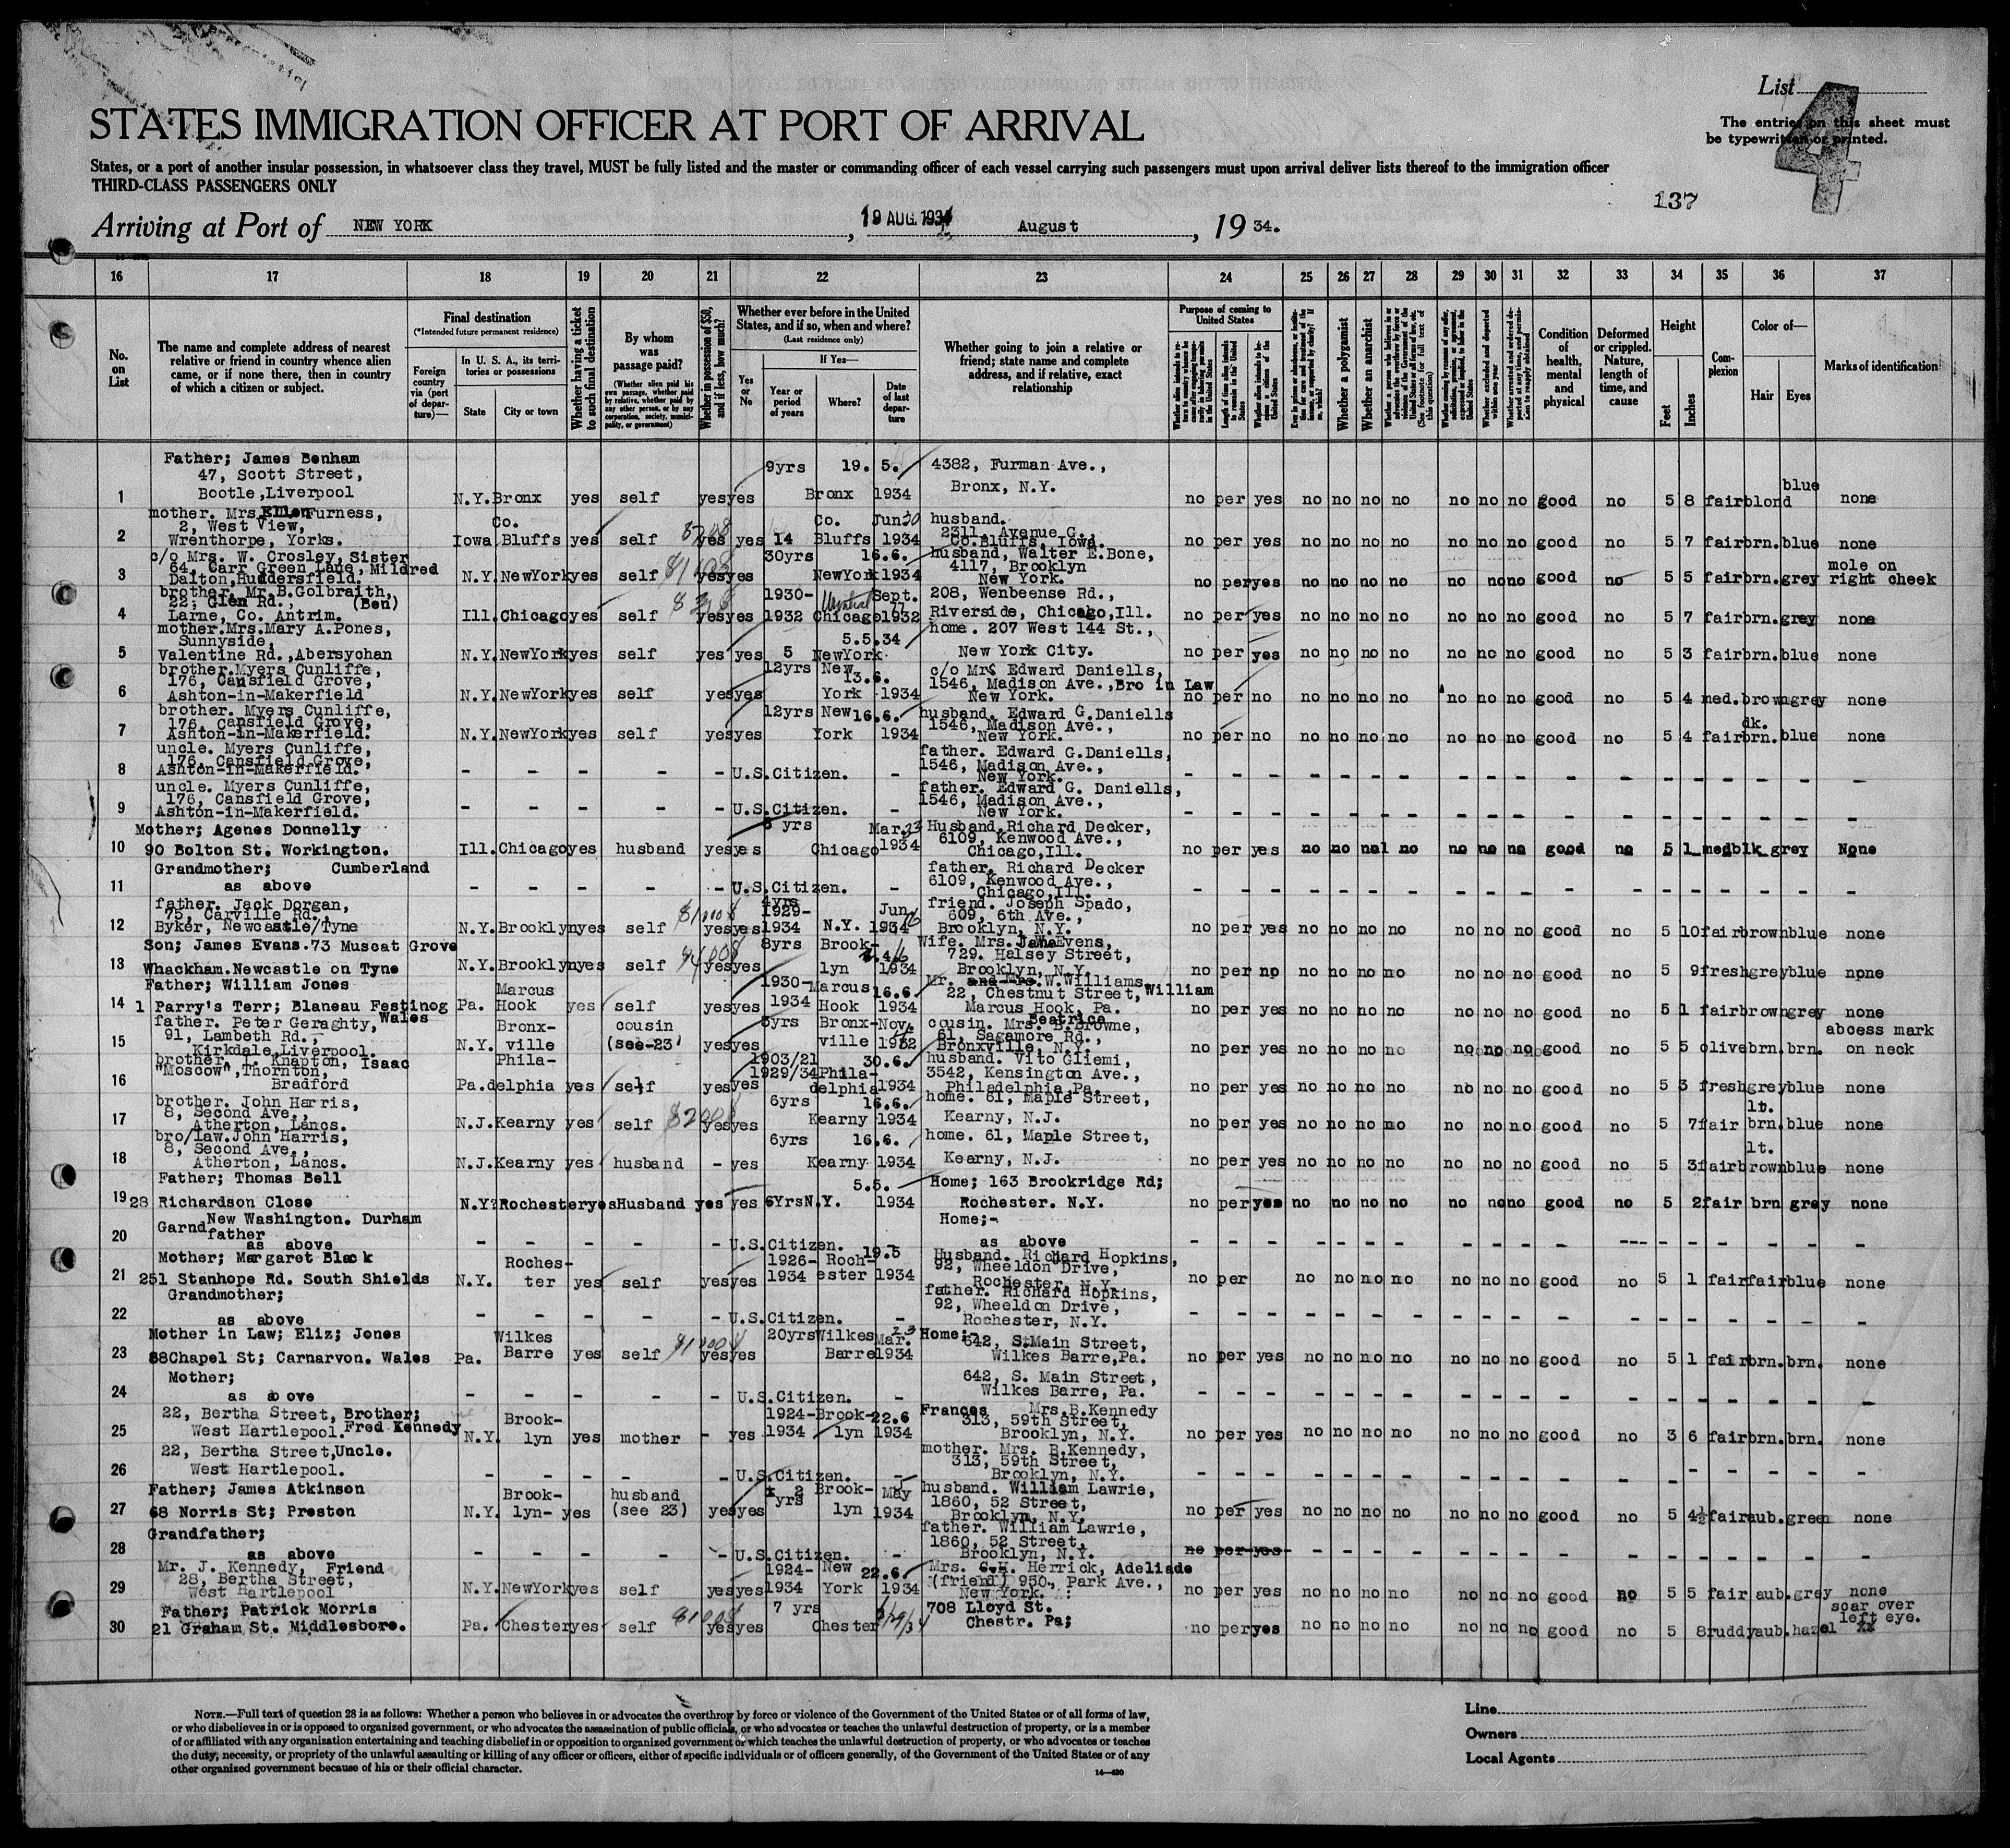 List
4
The entries on this sheet must
be typewritten or printed.
STATES IMMIGRATION OFFICER AT PORT OF ARRIVAL
States, or a port of another insular possession, in whatsoever class they travel, MUST be fully listed and the master or commanding officer of each vessel carrying such passengers must upon arrival deliver lists thereof to the immigration officer
THIRD-CLASS PASSENGERS ONLY
137
Arriving at Port of NEW YORK, 19 AUG. 1934 August, 19 34.
16 17 18 19 20 21 22 23 24 25 26 27 28 29 30 31 32 33 34 35 36 37
No. on List
The name and complete address of nearest relative or friend in country whence alien came, or if none there, then in country of which a citizen or subject.
Final destination
(*Intended future permanent residence)
Foreign country via (port of departure)—
In U. S. A., its territories or possessions
State
City or town
Whether having a ticket to such final destination
By whom was passage paid?
(Whether alien paid his own passage, whether paid by relative, whether paid by any other person, or by any corporation, society, municipality, or government)
Whether in possession of $50, and if less, how much?
Whether ever before in the United States, and if so, when and where?
(Last residence only)
Yes or No
If Yes—
Year or period of years
Where?
Date of last departure
Whether going to join a relative or friend; state name and complete address, and if relative, exact relationship
Purpose of coming to United States
Whether a polygamist
Whether an anarchist
Condition of health, mental and physical
Deformed or crippled. Nature, length of time, and cause
Height
Feet
Inches
Complexion
Color of—
Hair
Eyes
Marks of identification
Father; James Benham 9yrs 19. 5. 4382, Furman Ave.,
47, Scott Street, Bronx, N.Y. blue
1 Bootle, Liverpool N.Y. Bronx yes self yes yes Bronx 1934 no per yes no no no no no no no good no 5 8 fair blond none
mother. Mrs Ellen Furness, Co. Co. Jun 30 husband.
2, West View, 2311, Avenue G.,
2 Wrenthorpe, Yorks. Iowa Bluffs yes self yes yes 14 Bluffs 1934 Co.Bluffs, Iowa. no per yes no no no no no no no good no 5 7 fair brn. blue none
c/o Mrs. W. Crosley, Sister 30yrs 16.6. husband, Walter E.Bone,
64, Carr Green Lane, Mildred 4117, Brooklyn mole on
3 Dalton, Huddersfield. N.Y. NewYork yes self yes yes NewYork 1934 New York. no per yes no no no no no no no good no 5 5 fair brn. grey right cheek
brother. Mr.B.Golbraith, 1930- Sept. 208, Wenbeense Rd.,
22, Glen Rd., (Ben)
4 Larne, Co. Antrim. Ill. Chicago yes self yes yes 1932 Chicago 1932 Riverside, Chicago, Ill. no per yes no no no no no no no good no 5 7 fair brn. grey none
mother.Mrs.Mary A.Pones, home. 207 West 144 St.,
Sunnyside, 5.5.34
5 Valentine Rd., Abersychan N.Y. NewYork yes self yes yes 5 NewYork New York City. no per yes no no no no no no no good no 5 3 fair brn. blue none
brother.Myers Cunliffe, 12yrs New c/o Mrs Edward Daniells,
176, Cansfield Grove, 13.6. 1546, Madison Ave., Bro in Law
6 Ashton-in-Makerfield N.Y. NewYork yes self yes yes York 1934 New York. no per no no no no no no no no good no 5 4 med. brown grey none
brother. Myers Cunliffe, 12yrs New 16.6. husband. Edward G.Daniells
176, Cansfield Grove, 1546, Madison Ave., dk.
7 Ashton-in-Makerfield. N.Y. NewYork yes self yes yes York 1934 New York. no per no no no no no no no no good no 5 4 fair brn. blue none
uncle. Myers Cunliffe, father. Edward G.Daniells,
176, Cansfield Grove, 1546, Madison Ave.,
8 Ashton-in-Makerfield. - - - - - U.S.Citizen. - New York.
uncle. Myers Cunliffe, father. Edward G. Daniells,
176, Cansfield Grove, 1546, Madison Ave.,
9 Ashton-in-Makerfield. - - - - - U.S.Citizen. - New York.
Mother; Agenes Donnelly yrs Mar. 23 Husband Richard Decker,
6109, Kenwood Ave.,
10 90 Bolton St. Workington. Ill. Chicago yes husband yes yes Chicago 1934 Chicago, Ill. no per yes no no no no no no no good no 5 1 med blk grey None
Grandmother; Cumberland father. Richard Decker
6109, Kenwood Ave.,
11 as above - - - - - U.S.Citizen. - Chicago, Ill.
father. Jack Dorgan, 4yrs friend. Joseph Spado,
75, Carville Rd., 1929- Jun 609, 6th Ave.,
12 Byker, Newcastle/Tyne N.Y. Brooklyn yes self yes yes 1934 N.Y. 1934 Brooklyn, N.Y. no per yes no no no no no no no good no 5 10 fair brown blue none
Son; James Evans. 73 Muscat Grove 8yrs Brook- Wife. Mrs. Jane Evens,
729. Halsey Street,
13 Whackham. Newcastle on Tyne N.Y. Brooklyn yes self yes yes lyn 1934 Brooklyn, N.Y. no per no no no no no no no no good no 5 9 fresh grey blue none
Father; William Jones Marcus 1930- Marcus 16.6. Mr. and Mrs. W.Williams,
22, Chestnut Street, William
14 1 Parry's Terr; Blaneau Festinog Pa. Hook yes self yes yes 1934 Hook 1934 Marcus Hook, Pa. no per yes no no no no no no no good no 5 1 fair brown grey none
father. Peter Geraghty, Wales Bronx- cousin yrs Bronx- Nov. cousin. Mrs. Beatrice B.Browne,
91, Lambeth Rd., 61, Sagamore Rd., abcess mark
15 Kirkdale, Liverpool. N.Y. ville (see 23) yes yes ville 1932 Bronxville, N.Y. no per yes no no no no no no no good no 5 5 olive brn. brn. on neck
brother. I. Knapton, Isaac Phila- 1903/21 30.6. husband. Vito Gliemi,
"Moscow", Thornton, 1929/34 Phila- 3542, Kensington Ave.,
16 Bradford Pa. delphia yes self yes yes delphia 1934 Philadelphia, Pa. no per yes no no no no no no no good no 5 3 fresh grey blue none
brother. John Harris, 6yrs 16.6. home. 61, Maple Street,
8, Second Ave., lt.
17 Atherton, Lancs. N.J. Kearny yes self yes yes Kearny 1934 Kearny, N.J. no per yes no no no no no no no good no 5 7 fair brn. blue none
bro/law. John Harris, 6yrs 16.6. home. 61, Maple Street,
8, Second Ave., lt.
18 Atherton, Lancs. N.J. Kearny yes husband - yes Kearny 1934 Kearny, N.J. no per yes no no no no no no no good no 5 3 fair brown blue none
Father; Thomas Bell 5.5. Home; 163 Brookridge Rd;
19 28 Richardson Close N.Y. Rochester yes Husband yes yes 6Yrs N.Y. 1934 Rochester. N.Y. no per yes no no no no no no no good no 5 2 fair brn grey none
New Washington. Durham Home;-
Garnd father
20 as above - - - - - U.S.Citizen. - as above
Mother; Margaret Black Roches- 1926- Roch- 19.5 Husband. Richard Hopkins,
92, Wheeldon Drive,
21 251 Stanhope Rd. South Shields N.Y. ter yes self yes yes 1934 ester 1934 Rochester, N.Y. no per no no no no no no no good no 5 1 fair fair blue none
Grandmother; father. Richard Hopkins,
92, Wheeldon Drive,
22 as above - - - - - U.S.Citizen. - Rochester, N.Y.
Mother in Law; Eliz; Jones Wilkes 20yrs Wilkes Mar. 23 Home;-
642, S.Main Street,
23 88 Chapel St; Carnarvon. Wales Pa. Barre yes self yes yes Barre 1934 Wilkes Barre, Pa. no per yes no no no no no no no good no 5 1 fair brn. brn. none
Mother; 642, S. Main Street,
24 as above - - - - - U.S.Citizen. - Wilkes Barre, Pa.
22, Bertha Street, Brother; Brook- 1924- Brook- 22.6 Frances Mrs.B.Kennedy
313, 59th Street,
25 West Hartlepool. Fred Kennedy N.Y. lyn yes mother - yes 1934 lyn 1934 Brooklyn, N.Y. no per yes no no no no no no no good no 3 6 fair brn. brn. none
22, Bertha Street, Uncle. mother. Mrs. B.Kennedy,
313, 59th Street,
26 West Hartlepool. - - - - - U.S.Citizen. - Brooklyn, N.Y.
Father; James Atkinson Brook- husband 2 yrs Brook- May husband. William Lawrie,
1860, 52 Street,
27 68 Norris St; Preston N.Y. lyn- yes (see 23) yes yes lyn 1934 Brooklyn, N.Y. no per yes no no no no no no no good no 5 4½ fair aub. green none
Grandfather; father. William Lawrie,
1860, 52 Street,
28 as above - - - - - U.S.Citizen. - Brooklyn, N.Y. no per yes
Mr. J. Kennedy, Friend 1924- New 22.6. Mrs. C.H. Herrick, Adeliade
28, Bertha Street, (friend) 950., Park Ave.,
29 West Hartlepool N.Y. NewYork yes self yes yes 1934 York 1934 New York. no per yes no no no no no no no good no 5 5 fair aub. grey none
Father; Patrick Morris 7 yrs 708 Lloyd St. scar over
30 21 Graham St. Middlesboro. Pa. Chester yes self yes yes Chester Chestr. Pa; no per yes no no no no no no no good no 5 8 ruddy aub. hazel left eye.
NOTE.—Full text of question 28 is as follows: Whether a person who believes in or advocates the overthrow by force or violence of the Government of the United States or of all forms of law,
or who disbelieves in or is opposed to organized government, or who advocates the assassination of public officials, or who advocates or teaches the unlawful destruction of property, or is a member
of or affiliated with any organization entertaining and teaching disbelief in or opposition to organized government or which teaches the unlawful destruction of property, or who advocates or teaches
the duty, necessity, or propriety of the unlawful assaulting or killing of any officer or officers, either of specific individuals or of officers generally, of the Government of the United States or of any
other organized government because of his or their official character.
14—430
Line
Owners
Local Agents